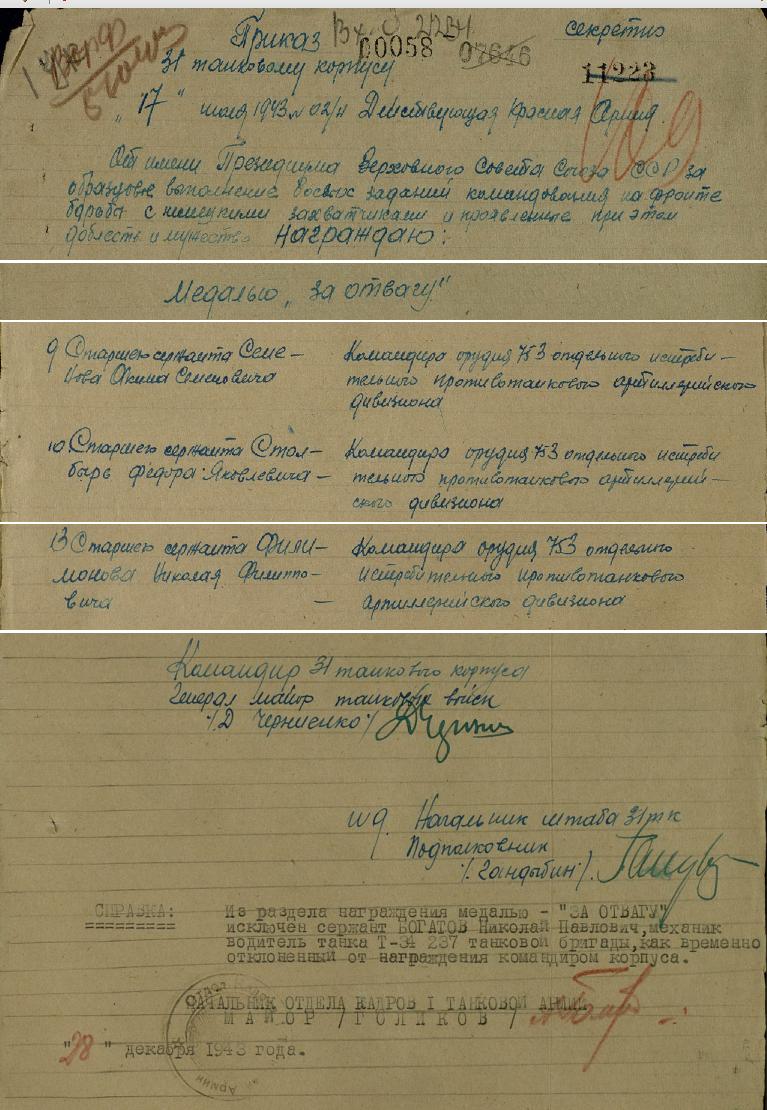 Приказ
секретно
00058 07646
31 танковому корпусу
11223
"17" июля 1943 г. № 02/н Действующая Красная Армия.
От имени Президиума Верховного Совета Союза ССР за
образцовое выполнение боевых заданий командования на фронте
борьбы с немецкими захватчиками и проявленные при этом
доблесть и мужество награждаю:
Медалью "За отвагу"
9 Старшего сержанта Семе-
нова Акима Семеновича
Командира орудия 753 отдельного истреби-
тельного противотанкового артиллерийского
дивизиона
10 Старшего сержанта Стол-
бырь Федора Яковлевича -
Командира орудия 753 отдельного истреби
тельного противотанкового артиллерий-
ского дивизиона
13 Старшего сержанта Фили-
монова Николая Филиппо-
вича -
Командира орудия 753 отдельного
истребительного противотанкового
артиллерийского дивизиона
Командир 31 танкового корпуса
Генерал майор танковых войск
/Д Черниенко/
Начальник штаба 31 тк
Подполковник
/Гандыбин/.
СПРАВКА: Из раздела награждения медалью - "ЗА ОТВАГУ"
исключен сержант БОГАТОВ Николай Павлович, механик
водитель танка Т-34 237 танковой бригады, как временно
отклоненный от награждения командиром корпуса.
НАЧАЛЬНИК ОТДЕЛА КАДРОВ I ТАНКОВОЙ АРМИИ
МАЙОР /ГОЛИКОВ/
"28" декабря 1943 года.